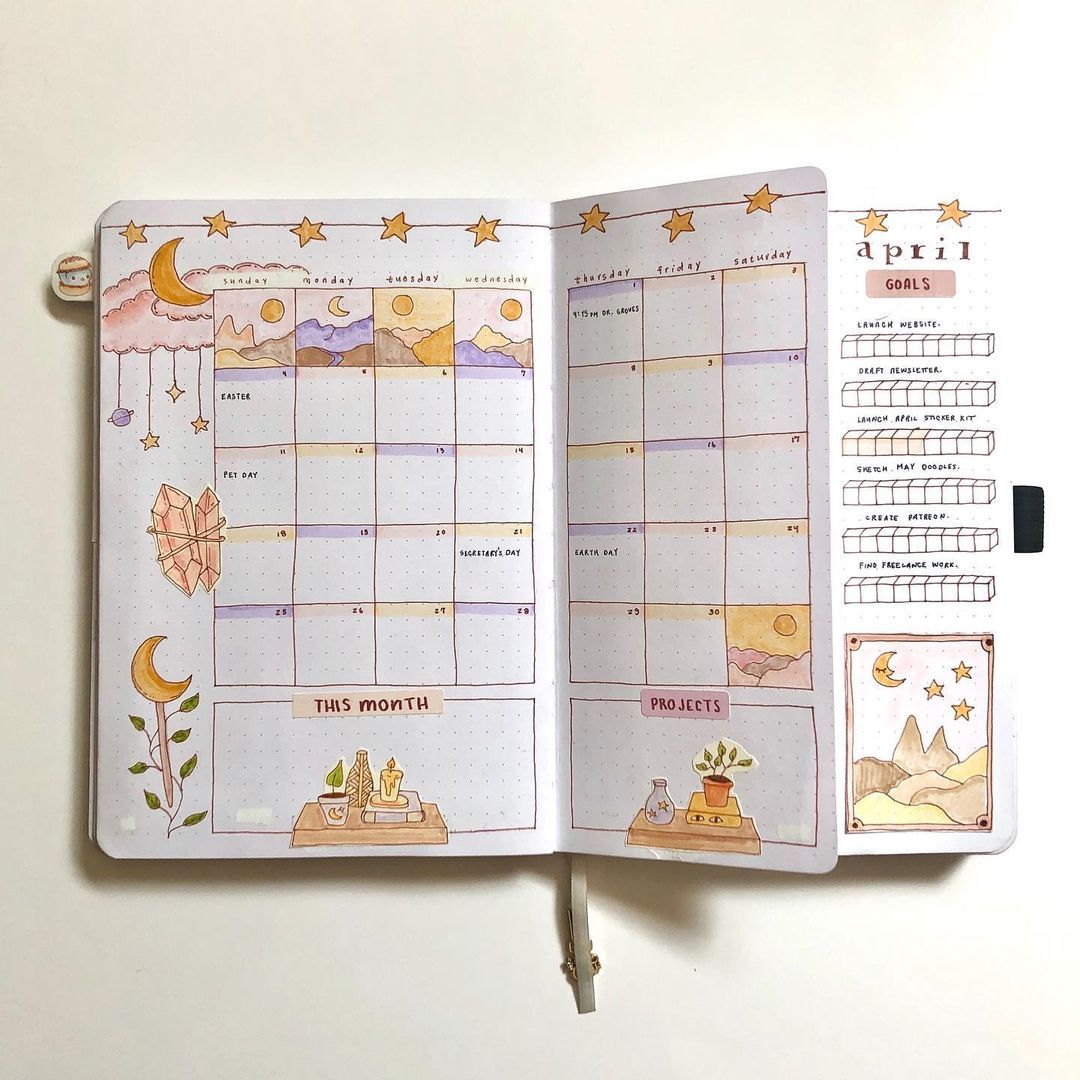 sunday monday tuesday wednesday
thursday friday saturday
1 2 3
4:15 PM DR. GROVES
4 5 6 7
8 9 10
EASTER
11 12 13 14
15 16 17
PET DAY
18 19 20 21
22 23 24
SECRETARY'S DAY
EARTH DAY
25 26 27 28
29 30
THIS MONTH
PROJECTS
april
GOALS
LAUNCH WEBSITE.
DRAFT NEWSLETTER.
LAUNCH APRIL STICKER KIT
SKETCH MAY DOODLES.
CREATE PATREON.
FIND FREELANCE WORK.